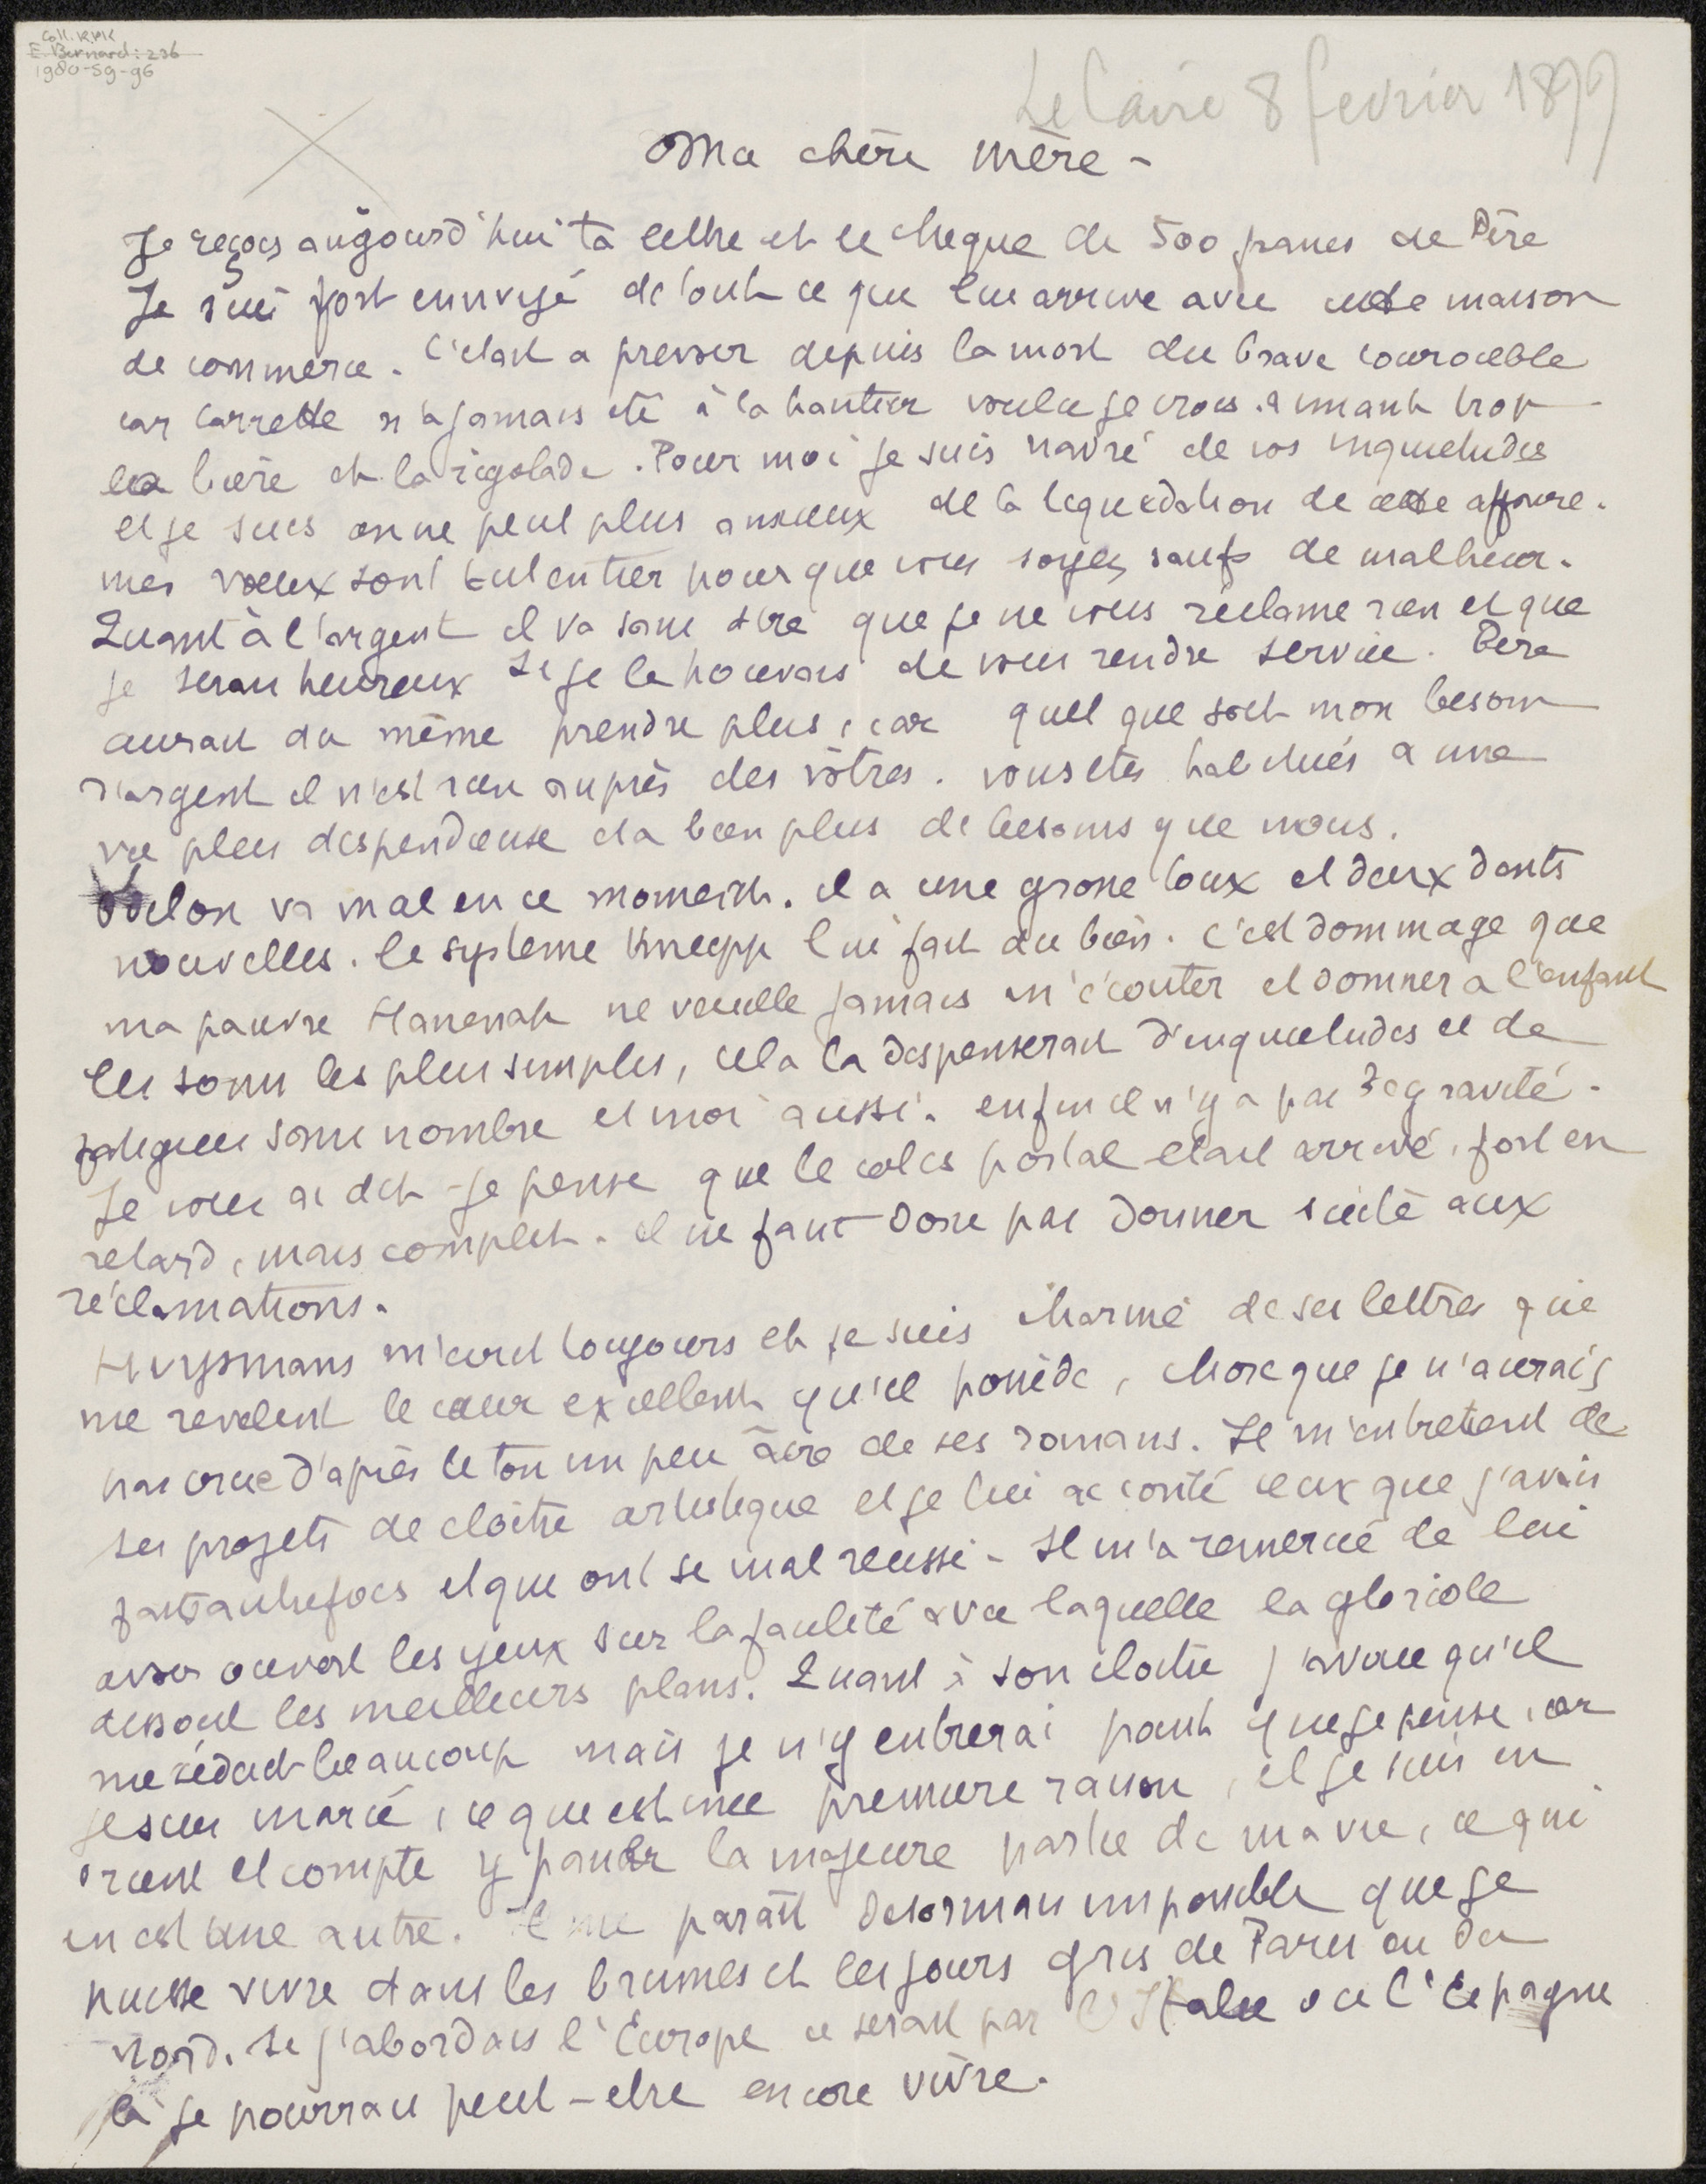 Coll. RMK
E. Bernard: 236
1980-59-96
Le Caire 8 fevrier 1899
Ma chère mère -
Je reçois aujourd'hui ta lettre et le cheque de 500 francs de Père
Je suis fort ennuyé de tout ce qui lui arrive avec cette maison
de commerce. C'etait a prevoir depuis la mort du brave
car Carrette n'a jamais eté à la hauteur voulu je crois. aimant trop
la bière et la rigolade. Pour moi je suis navré de vos inquietudes
et je suis on ne peut plus anxieux de la liquidation de cette affaire.
mes vœux sont tout entier pour que vous soyez saufs de malheur.
Quant à l'argent il va sans dire que je ne vous réclame rien et que
je serais heureux si je le pouvais de vous rendre service. Père
aurait du même prendre plus, car quel que soit mon besoin
d'argent il n'est rien auprès des vôtres. vous etes habitués a une
vie plus dispendieuse et a bien plus de besoins que nous.
Odilon va mal en ce moment. il a une grosse toux et deux dents
nouvelles. le systeme Kneipp lui fait du bien. C'est dommage que
ma pauvre Hanenah ne veuille jamais m'écouter et donner a l'enfant
les soins les plus simples, cela la dispenserait d'inquietudes et de
fatigues sans nombre et moi aussi. enfin il n'y a pas de gravité.
Je vous ai dit je pense que le colis postal etait arrivé, fort en
retard, mais complet. il ne faut donc pas donner suite aux
réclamations.
Huysmans m'ecrit toujours et je suis charmé de ses lettres qui
me revelent le cœur excellent qu'il possède, chose que je n'aurais
pas crue d'après le ton un peu âcre de ses romans. Il m'entretient de
ses projets de cloître artistique et je lui ai conté ceux que j'avais
fait autrefois et qui ont si mal reussi - Il m'a remercié de lui
avoir ouvert les yeux sur la facilité avec laquelle la gloriole
dissout les meilleurs plans. Quant à son cloitre j'avoue qu'il
me séduit beaucoup mais je n'y entrerai point que je pense, car
je suis marié, ce qui est une premiere raison, et je suis en
orient et compte y passer la majeure partie de ma vie, ce qui
en est une autre. Il me paraît desormais impossible que je
puisse vivre dans les brumes et les jours gris de Paris ou du
Nord. Si j'abordais l'Europe ce serait par l'Italie ou l'Espagne
là je pourrais peut-etre encore vivre.